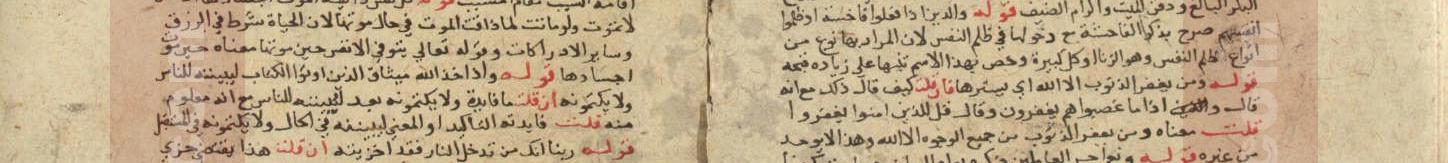 البكر البالغ و دفن الميت واكرام الضيف قوله والذين اذا فعلوا فاحشة اوظلموا
انفسهم صرح بذكر الفاحشة مع دخولها في ظلم النفس لان المراد بها نوع من
انواع ظلم النفس وهو الزنا او كل كبيرة وخص بهذا الاسم تنبيها على زيادة قبحه
قوله ومن يغفر الذنوب الا الله اي يسترها فان قلت كيف قال ذلك مع انه
قال واذا ما غضبوا هم يغفرون وقال قل للذين امنوا يغفروا
قلت معناه ومن يغفر الذنوب من جميع الوجوه الا الله وهذا لا يوجد
من غيره قوله ونعم اجر العاملين
لا تموت ولو ماتت لما ذاقت الموت في حال موتها لان الحياة شرط في الذوق
وساير الادراكات وقوله تعالي يتوفي الانفس حين موتها معناه حين موت
اجسادها قوله واذ اخذ الله ميثاق الذين اوتوا الكتاب لتبيننه للناس
ولا يكتمونه ان قلت ما فايدة ولا يكتمونه بعد لتبيننه للناس مع انه معلوم
منه قلت فايدته التاكيد او المعني ليبيننه في الحال ولا يكتمونه في المستقبل
قوله ربنا انك من تدخل النار فقد اخزيته ان قلت هذا يقتضي خزي